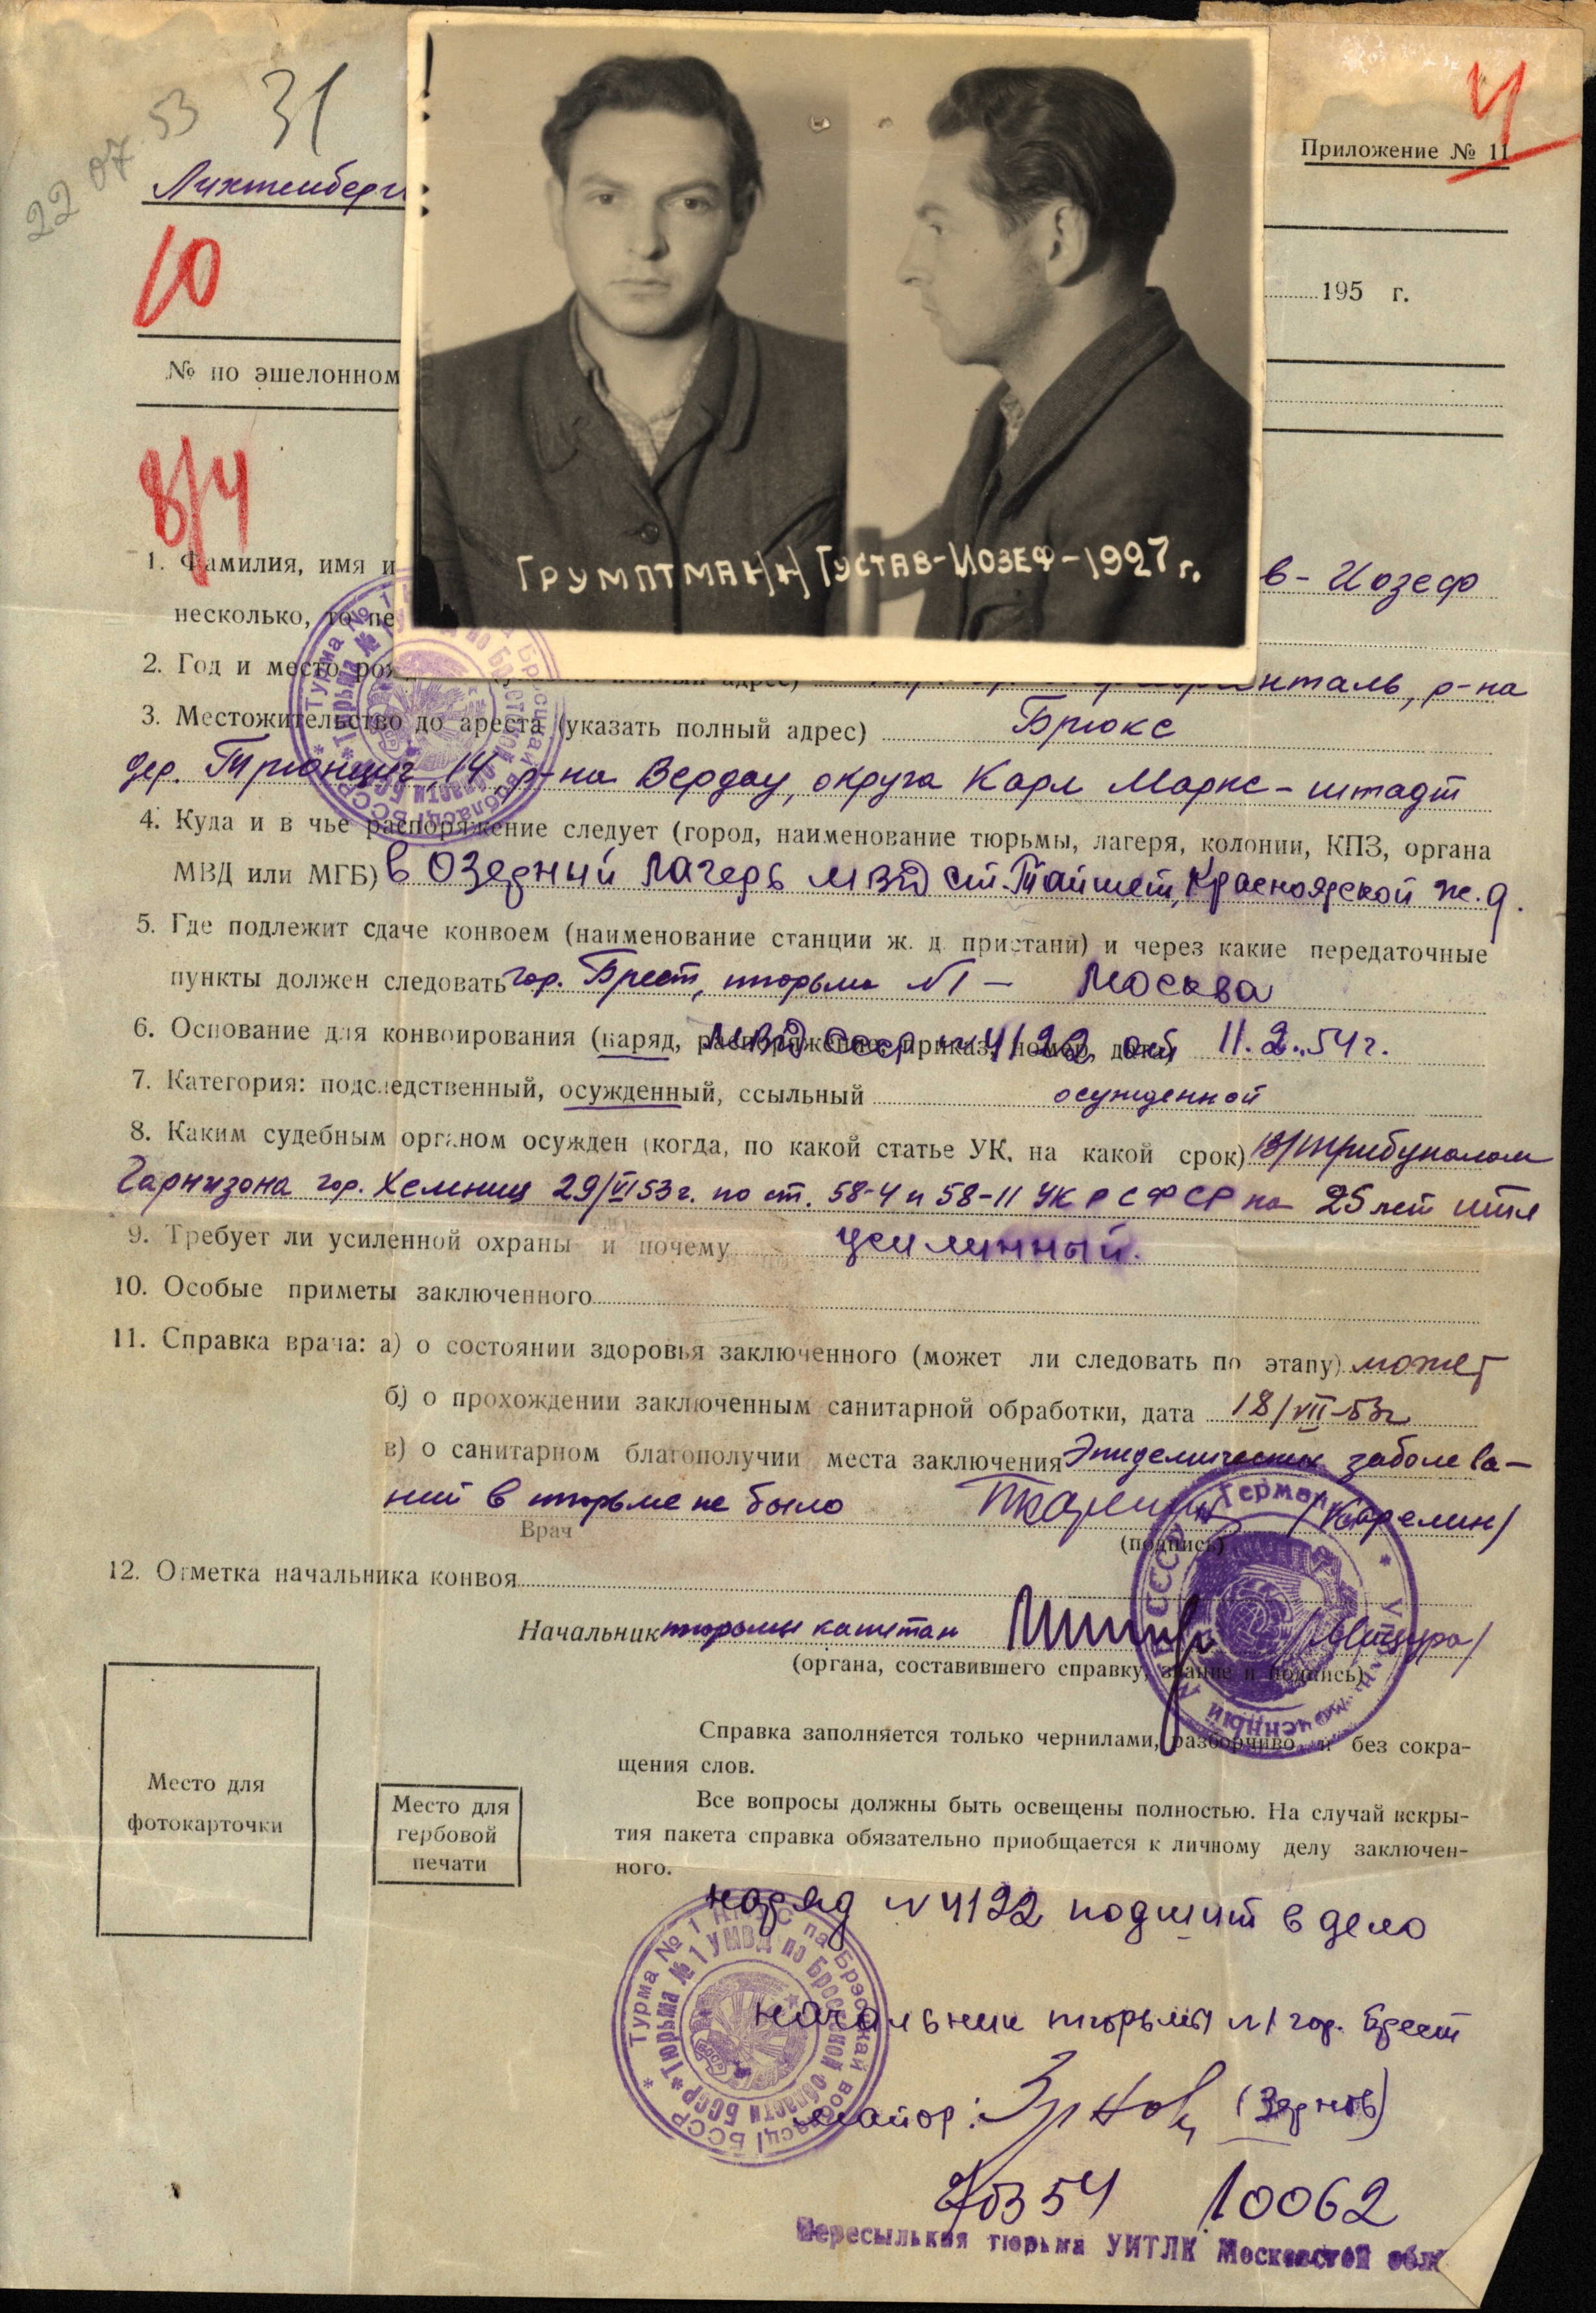 22 07 53
31
Приложение № 11
Лихтенберг
10
195 г.
№ по эшелонном
8/4
ГРУМПТМАНН ГУСТАВ-ИОЗЕФ-1927 г.
1. Фамилия, имя и в-Иозеф
несколько, то пе
2. Год и место рож адрес) нталь, р-на
3. Местожительство до ареста (указать полный адрес) Брюкс
дер. 14 р-на Вердау, округа Карл Маркс-штадт
4. Куда и в чье распоряжение следует (город, наименование тюрьмы, лагеря, колонии, КПЗ, органа
МВД или МГБ) в Озерный лагерь МВД ст. Тайшет, Красноярской ж.д.
5. Где подлежит сдаче конвоем (наименование станции ж. д. пристани) и через какие передаточные
пункты должен следовать гор. Брест, тюрьма №1 - Москва
6. Основание для конвоирования (наряд, распоряжение, приказ, номер, дата) МВД СССР № 4122 от 11.2.54 г.
7. Категория: подследственный, осужденный, ссыльный осужденной
8. Каким судебным органом осужден (когда, по какой статье УК, на какой срок) В/трибуналом
Гарнизона гор. Хемниц 29/VI 53 г. по ст. 58-4 и 58-11 УК РСФСР на 25 лет итл
9. Требует ли усиленной охраны и почему усилинный.
10. Особые приметы заключенного
11. Справка врача: а) о состоянии здоровья заключенного (может ли следовать по этапу) может
б) о прохождении заключенным санитарной обработки, дата 18/VII-53г
в) о санитарном благополучии места заключения Эпидемических заболева-
ний в тюрьме не было /Карелин/
Врач (подпись)
12. Отметка начальника конвоя
Начальник тюрьмы капитан /Мацура/
(органа, составившего справку, звание и подпись)
Справка заполняется только чернилами, разборчиво и без сокра-
щения слов.
Все вопросы должны быть освещены полностью. На случай вскры-
тия пакета справка обязательно приобщается к личному делу заключен-
ного.
Место для
фотокарточки
Место для
гербовой
печати
наряд №4122 подшит в дело
Турма № 1 па Брэсцкай вобласці БССР
Тюрьма № 1 УМВД по Брестской области БССР
начальник тюрьмы №1 гор. Брест
майор: (Зернов)
10062
Пересыльная тюрьма УИТЛК Московской обл